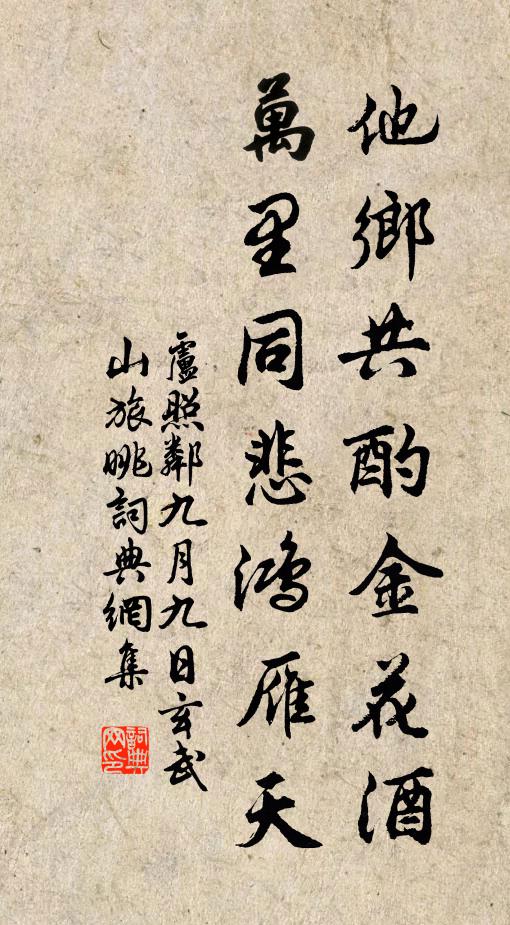 他鄉共酌金花酒
萬里同悲鴻雁天
盧照鄰九月九日玄武
山旅眺詞典網集
詞典
网印